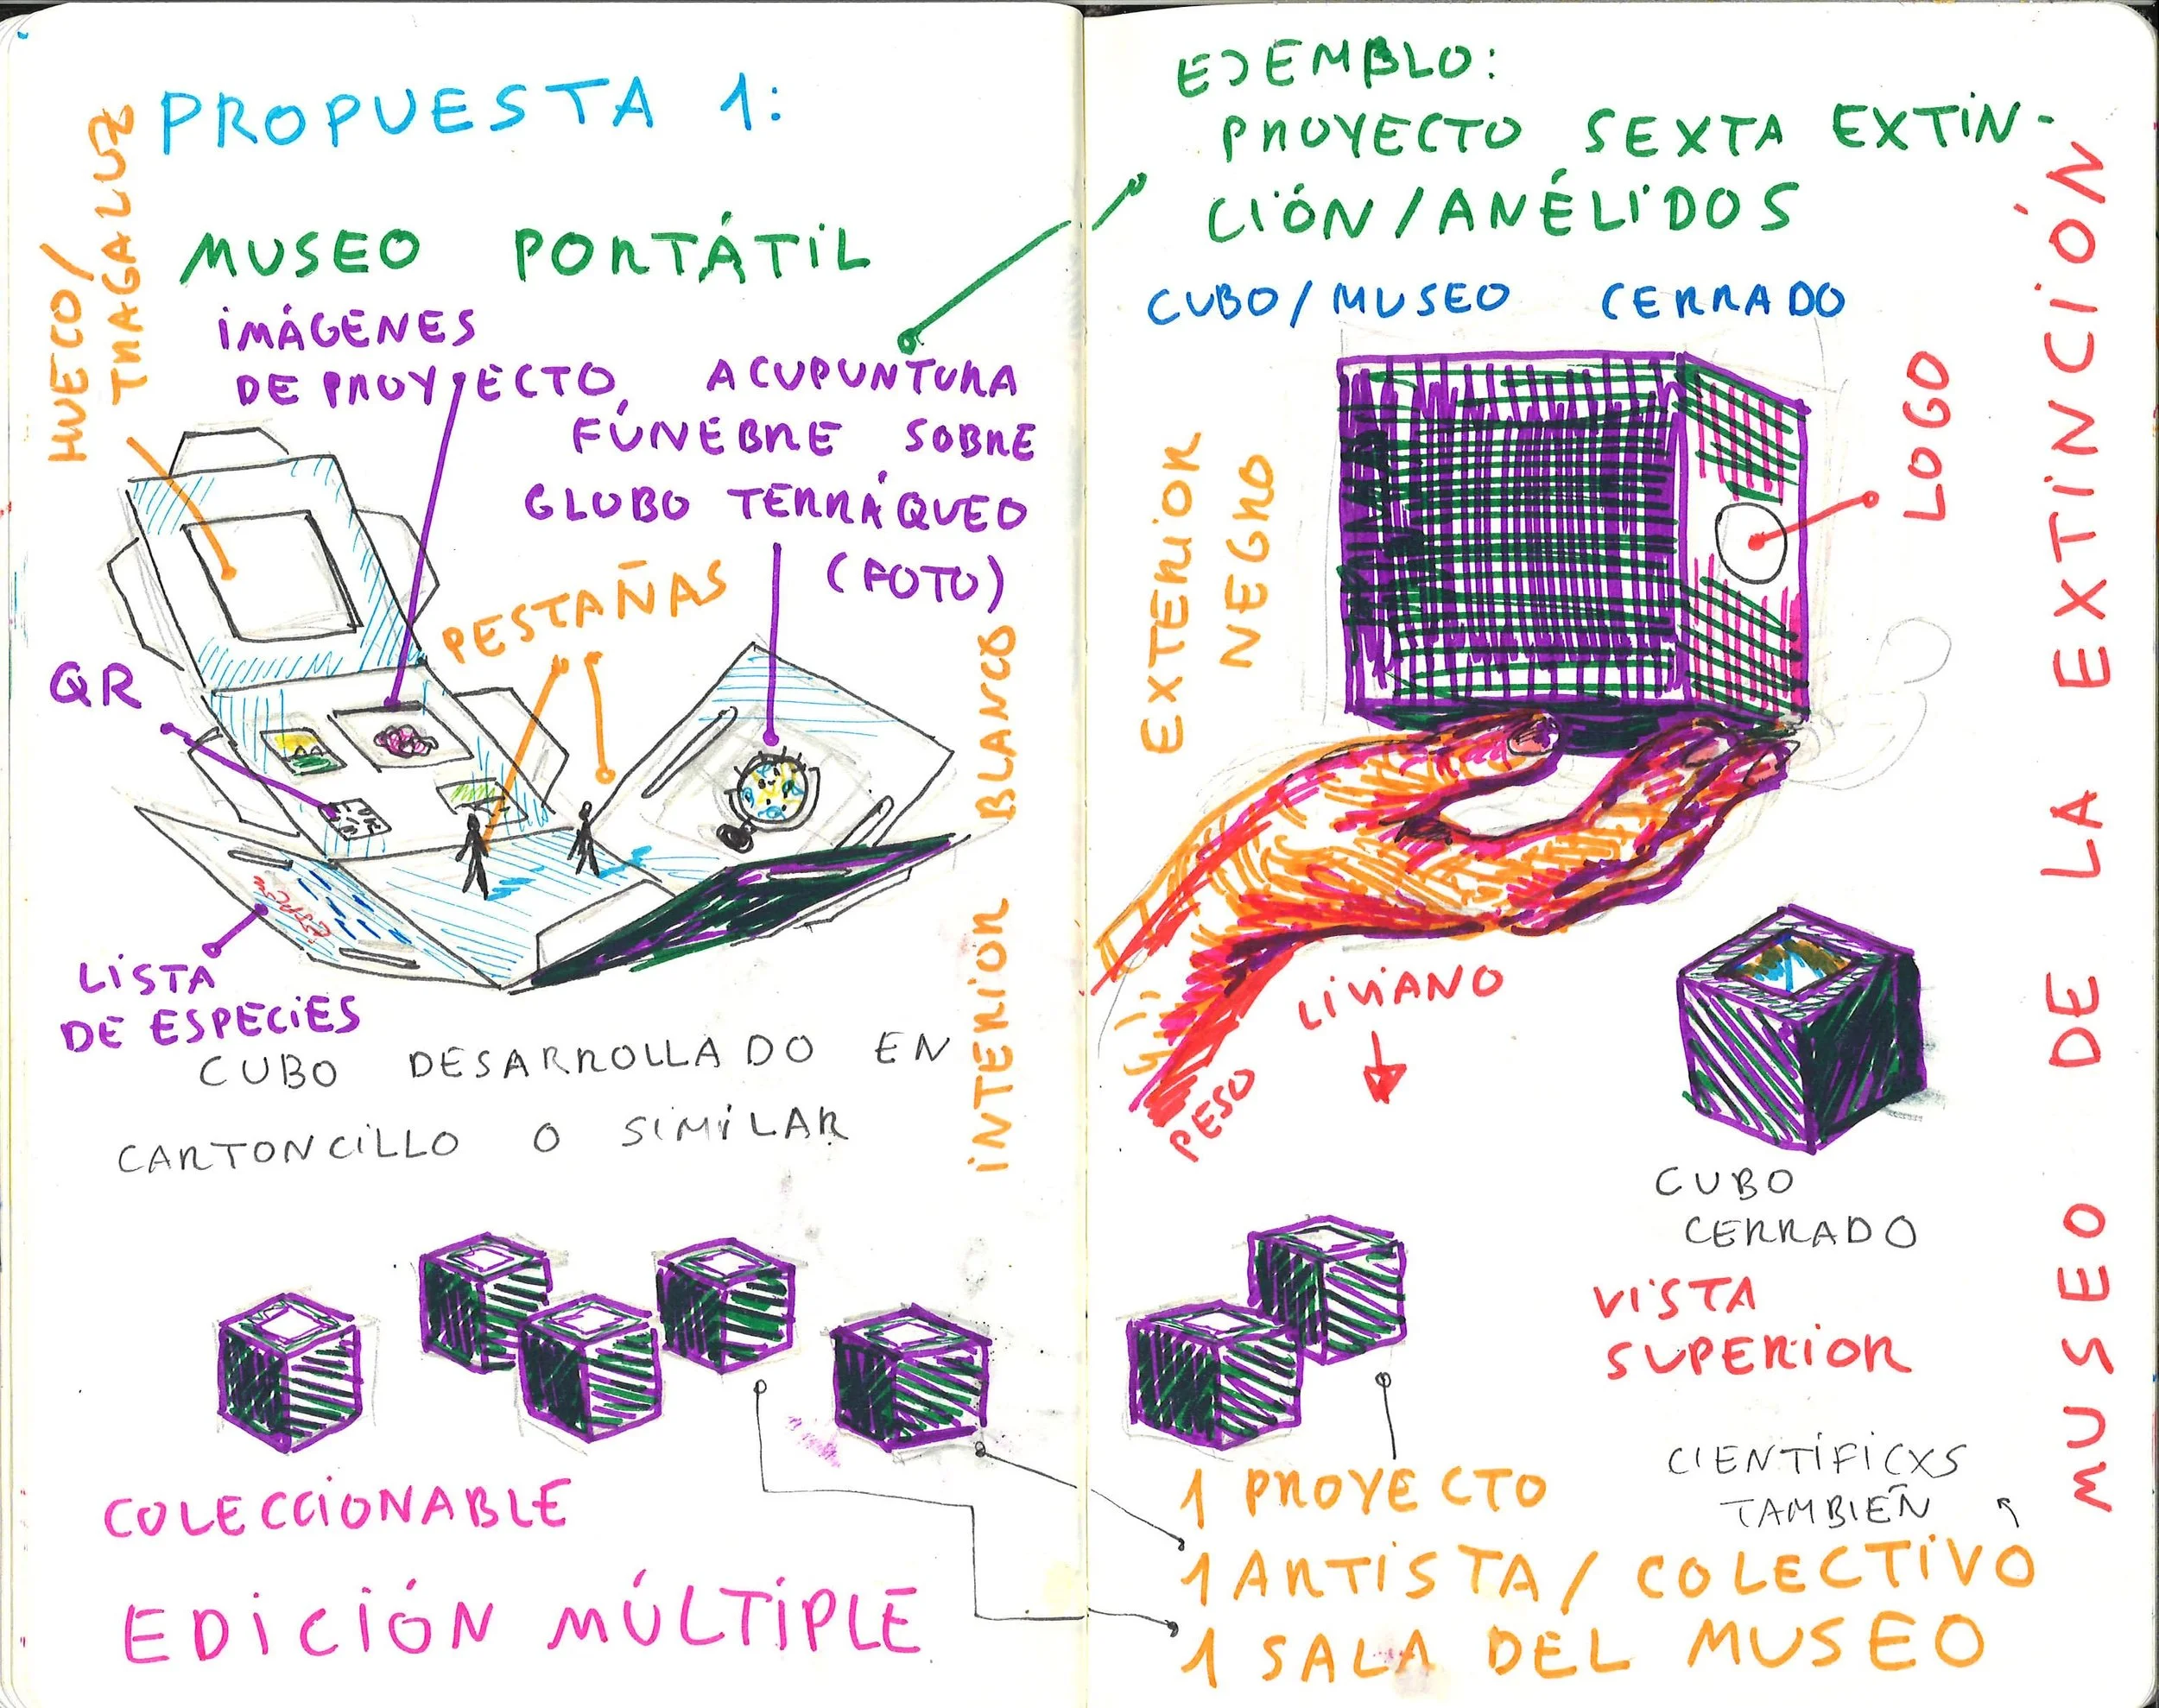 PROPUESTA 1:
HUECO/
TRAGALUZ
MUSEO PORTÁTIL
IMÁGENES
DE PROYECTO
ACUPUNTURA
FÚNEBRE SOBRE
GLOBO TERRÁQUEO
(FOTO)
PESTAÑAS
QR
LISTA
DE ESPECIES
INTERIOR BLANCO
CUBO DESARROLLADO EN
CARTONCILLO O SIMILAR
COLECCIONABLE
EDICIÓN MÚLTIPLE
EJEMPLO:
PROYECTO SEXTA EXTIN-
CIÓN/ANÉLIDOS
CUBO/MUSEO CERRADO
EXTERIOR
NEGRO
LOGO
LIVIANO
PESO
CUBO
CERRADO
VISTA
SUPERIOR
CIENTÍFICXS
TAMBIEÑ
1 PROYECTO
1 ARTISTA/COLECTIVO
1 SALA DEL MUSEO
MUSEO DE LA EXTINCIÓN